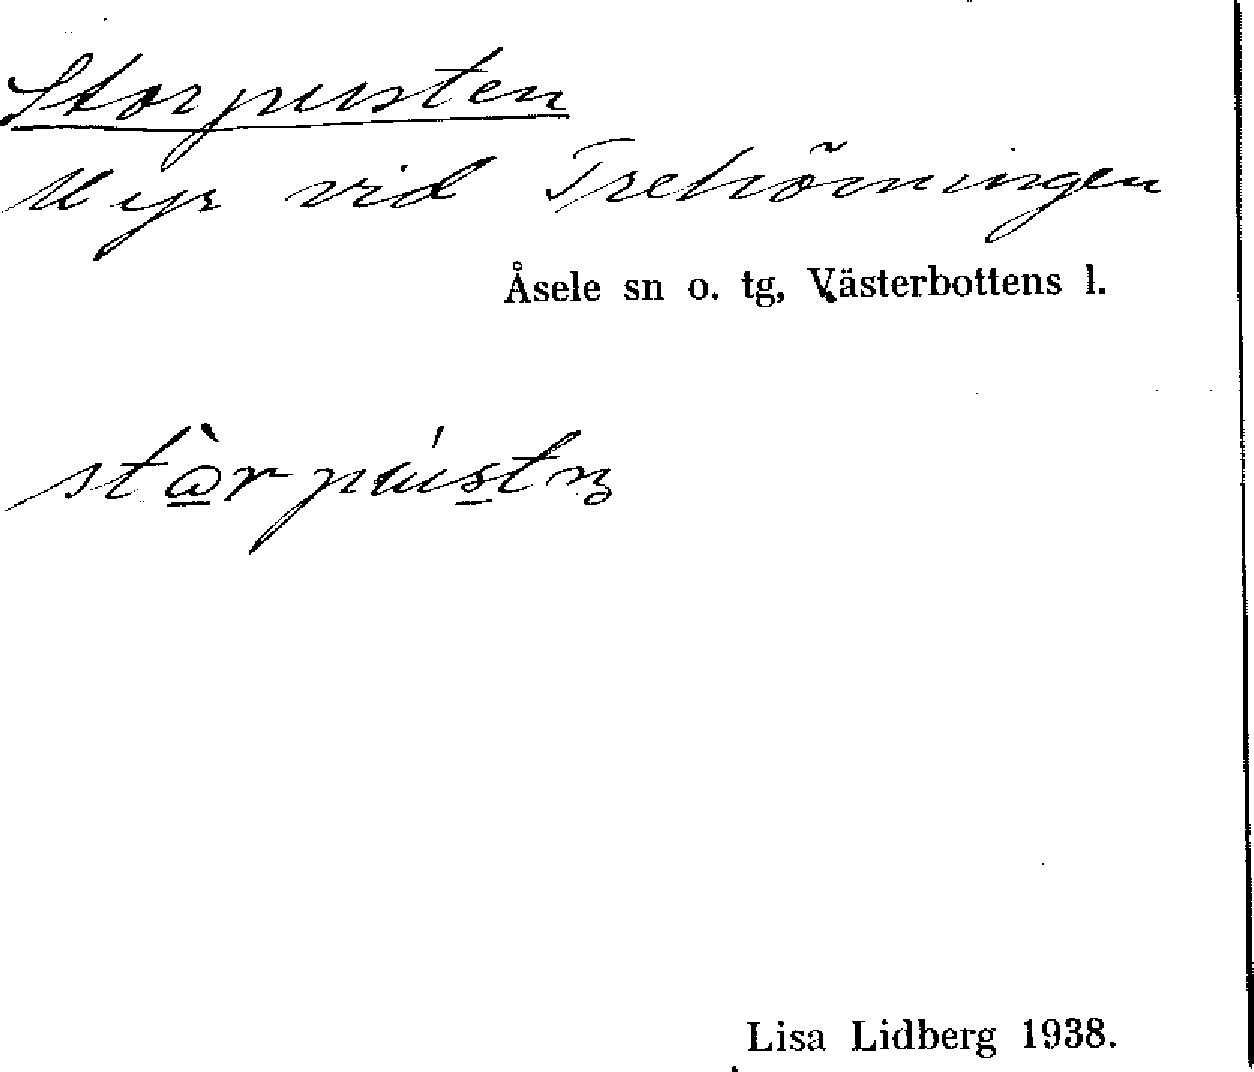 Storpusten
Myr vid Trehörningen
Åsele sn o. tg, Västerbottens l.
Lisa Lidberg 1938.